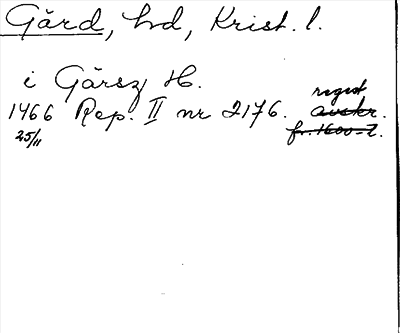 Gård, hd, Krist. l.
i Gårsz H.
1466 Rep. II nr 2176. regest avskr.
25/11 fr. 1600-t.